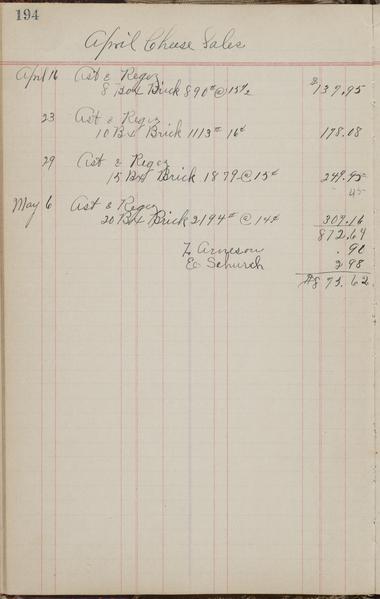 194
April Cheese Sales
April 16 Ast & Regez
8 Box Brick 890# @ 15½ $137.95
23 Ast & Regez
10 Bx Brick 1113# 16¢ 178.08
29 Ast & Regez
15 Bx Brick 1879 @ 15¢ 249.95
45
May 6 Ast & Regez
20 Bx Brick 2194# @ 14¢ 307.16
872.64
F Arneson .90
Ed Schurch 2 98
$873.62